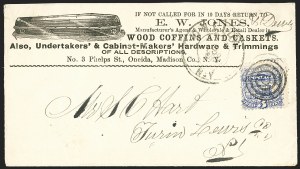 IF NOT CALLED FOR IN 10 DAYS RETURN TO
E. W. JONES,
Manufacturer's Agent & Wholesale & Retail Dealer in
WOOD COFFINS AND CASKETS.
Also, Undertakers' & Cabinet-Makers' Hardware & Trimmings
OF ALL DESCRIPTIONS,
No. 3 Phelps St., Oneida, Madison Co., N. Y.
N.Y.
Hart
Turin Lewis Co
N.Y.